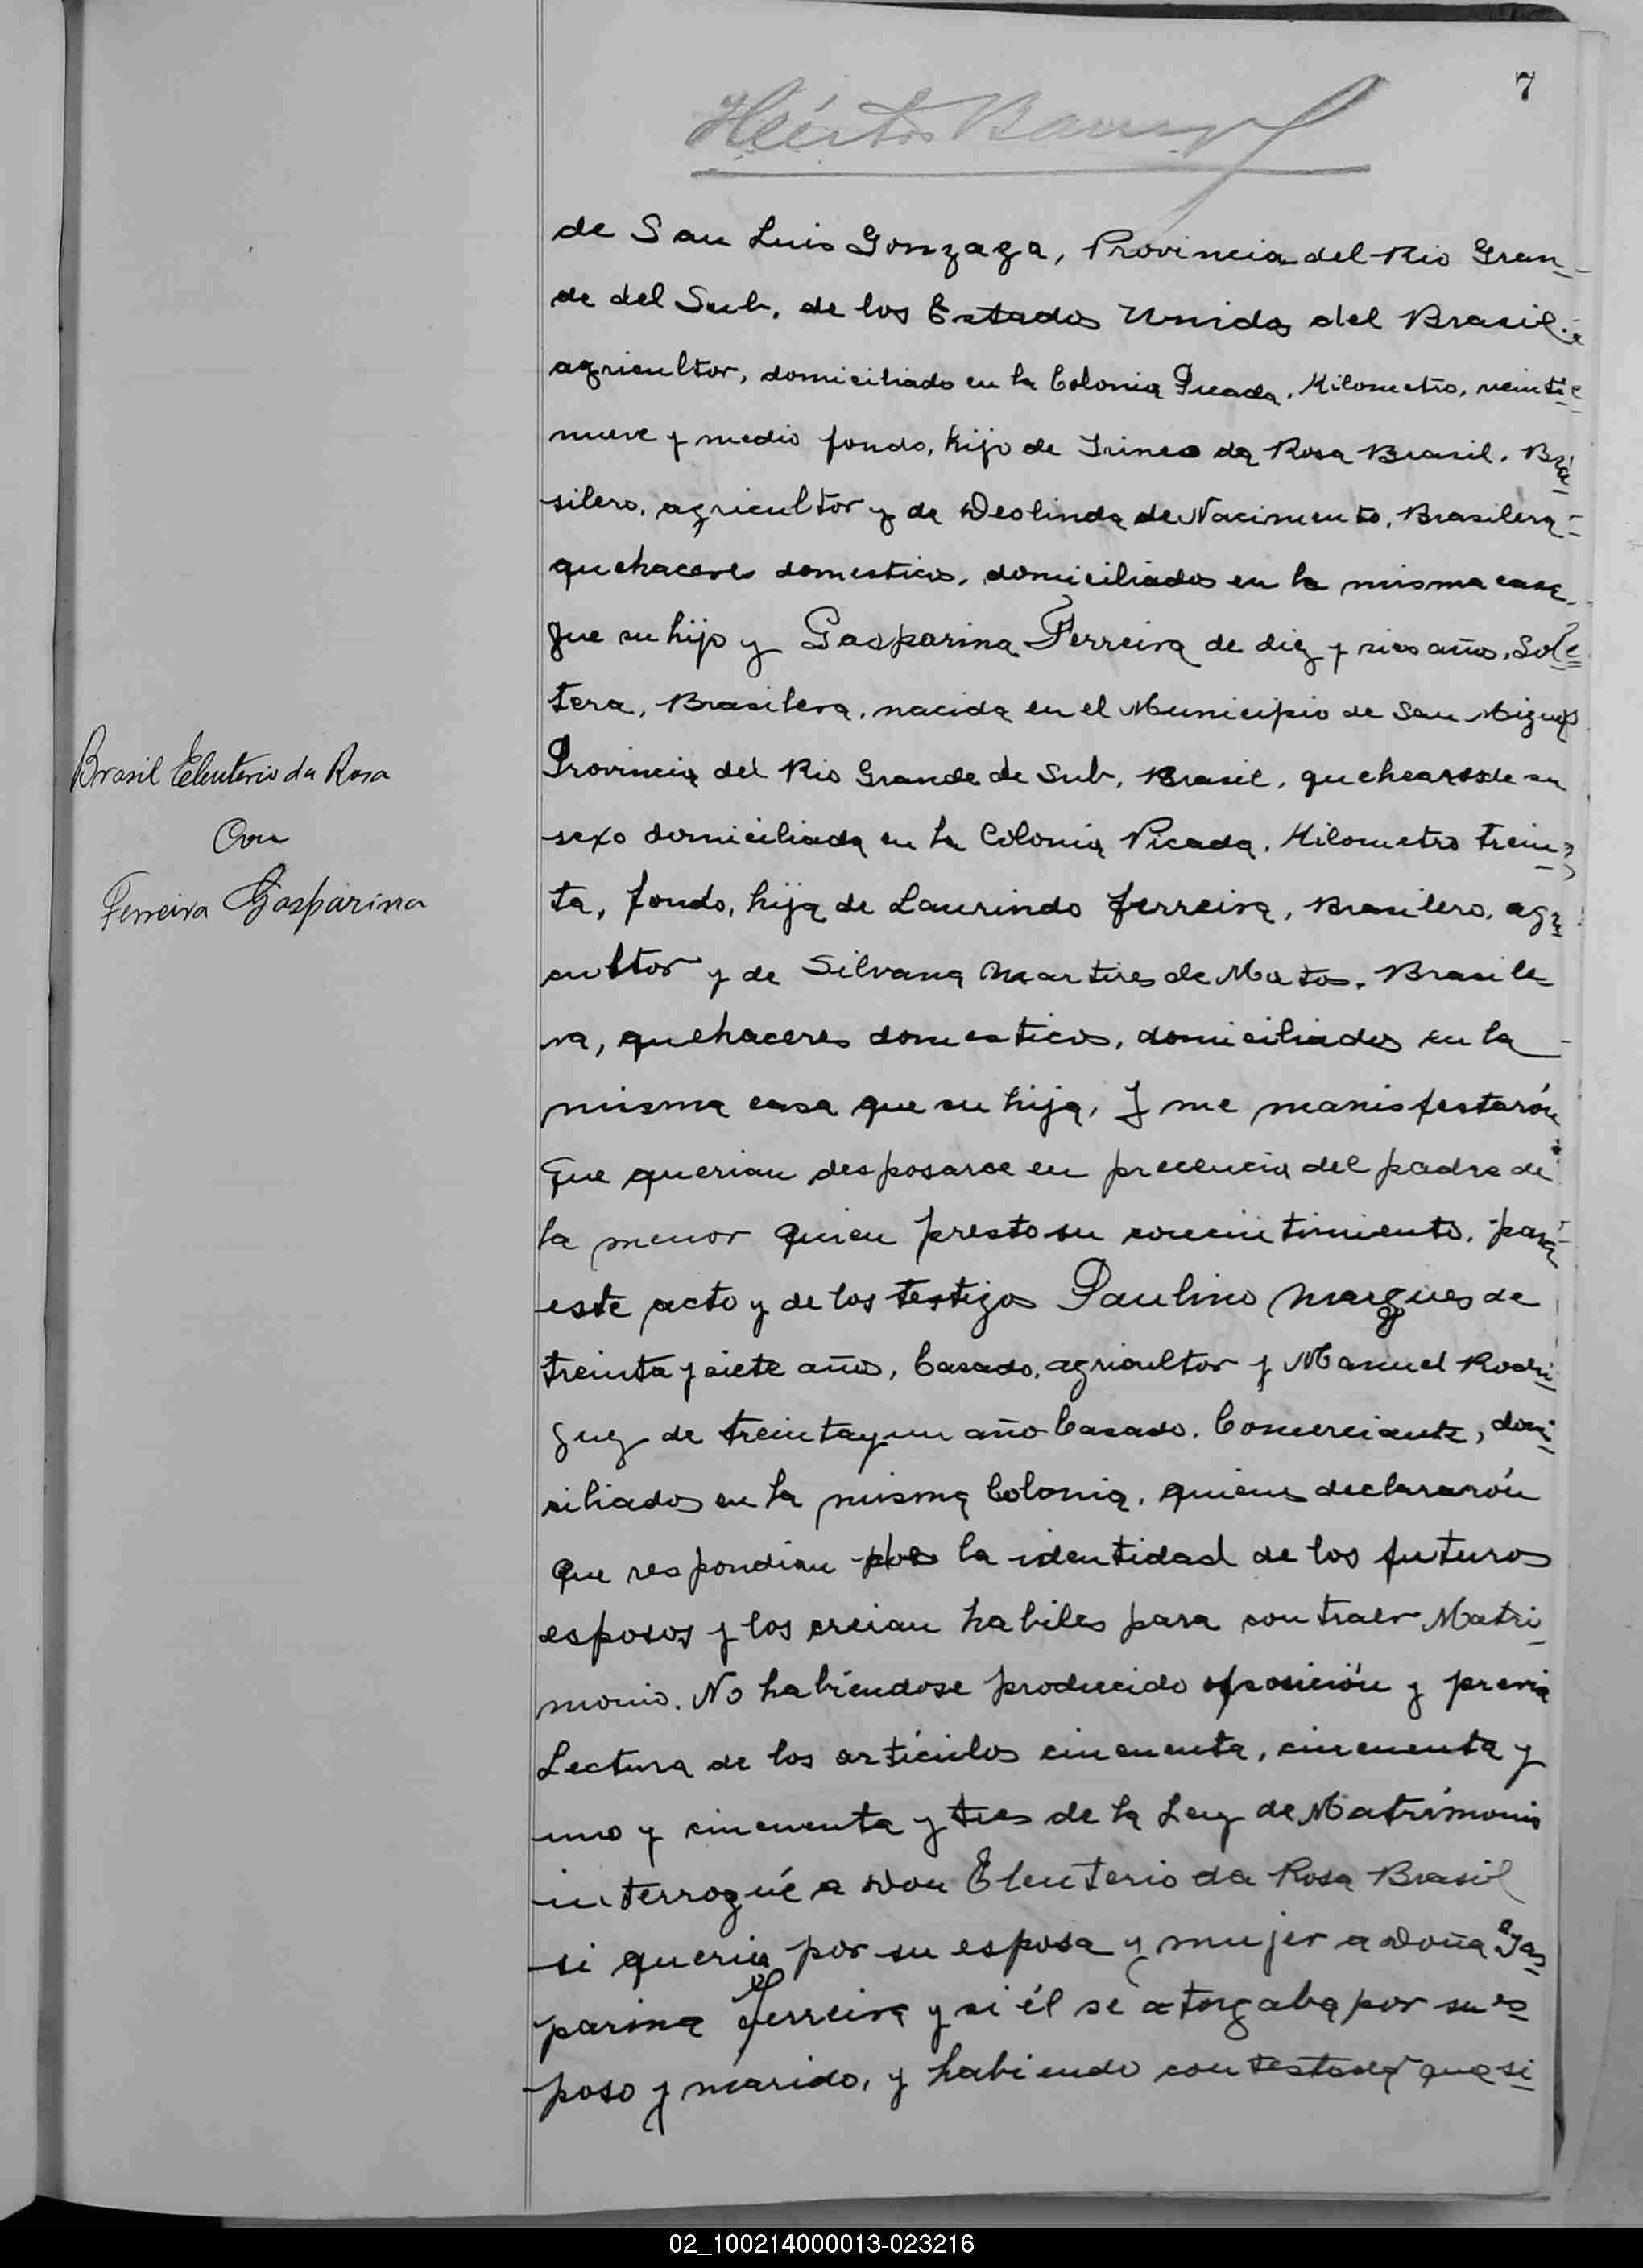 7
Héctor
de San Luis Gonzaga, Provincia del Rio Gran-
de del Sub. de los Estados Unidos del Brasil.
agricultor, domiciliado en la Colonia Picada, Kilometro, veinti
nueve y medio fondo, hijo de Irineo da Rosa Brasil. Bra
silero, agricultor y de Deolinda de Nacimento, Brasilera-
quehaceres domesticos, domiciliados en la misma casa
que su hijo y Gasparina Ferreira de diez y seis años, Sol
tera, Brasilera, nacida en el Municipio de San Miguel
Provincia del Rio Grande de Sub, Brasil, de su
Brasil Eleuterio da Rosa
Con
Ferreira Gasparina
sexo domiciliada en la Colonia Picada. Kilometro trein-
ta, fondo, hija de Laurindo Ferreira, Brasilero, agri
cultor y de Silvana Martires de Matos. Brasile
ra, quehaceres domesticos, domiciliados en la
misma casa que su hija, Y me manisfestarón
que querian desposarse en precencia del padre de
la menor quien presto su concintimiento, para
este acto y de los testigos Paulino Margues de
treinta y siete años, Casado, agricultor y Manuel Rodri
guez de treinta y un año Casado. Comerciante, domi
ciliados en la misma Colonia, quienes declararón
que respondian por la identidad de los futuros
esposos y los creian habiles para contraer Matri
monio. No habiendose producido oposición y previa
Lectura de los artículos cincuenta, cincuenta y
uno y cincuenta y tres de la Ley de Matrimonio
interrogué a Don Eleuterio da Rosa Brasil
si queria por su esposa y mujer a Doña Gas
parina Ferreira y si él se atorgaba por su es
poso y marido, y habiendo contestado que si
02_100214000013-023216